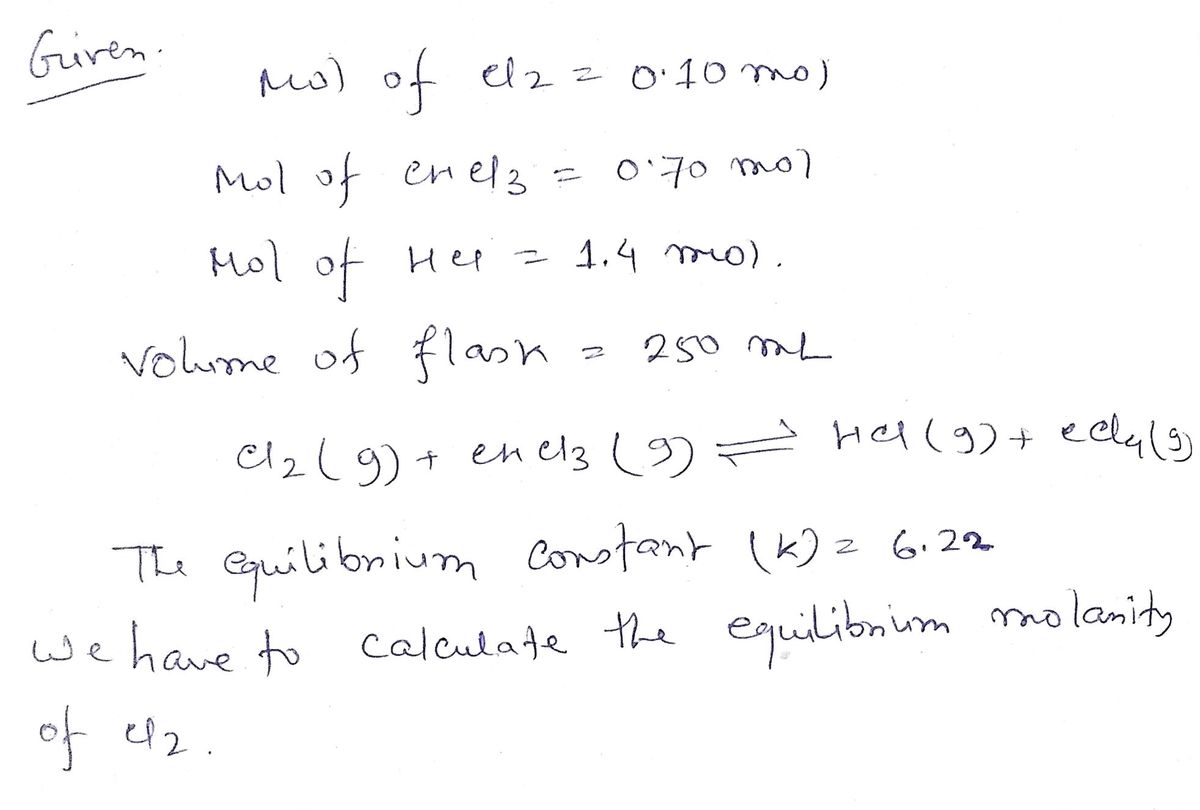 Given.
Mol of Cl2 = 0.10 mol
Mol of CHCl3 = 0.70 mol
Mol of HCl = 1.4 mol.
Volume of flask = 250 mL
Cl2(g) + CHCl3(g) ⇌ HCl(g) + CCl4(g)
The equilibrium constant (K) = 6.22
We have to calculate the equilibrium molarity
of Cl2.